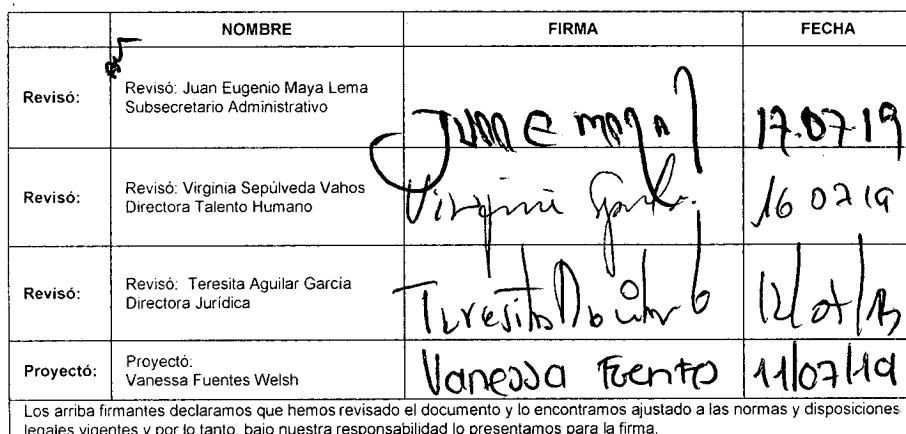 NOMBRE FIRMA FECHA
Revisó: Revisó: Juan Eugenio Maya Lema
Subsecretario Administrativo
17.07.19
Revisó: Revisó: Virginia Sepúlveda Vahos
Directora Talento Humano
Virginia
16 07 19
Revisó: Revisó: Teresita Aguilar García
Directora Jurídica
Teresita
Proyectó: Proyectó:
Vanessa Fuentes Welsh
Vanessa Fuentes 11/07/19
Los arriba firmantes declaramos que hemos revisado el documento y lo encontramos ajustado a las normas y disposiciones
legales vigentes y por lo tanto, bajo nuestra responsabilidad lo presentamos para la firma.